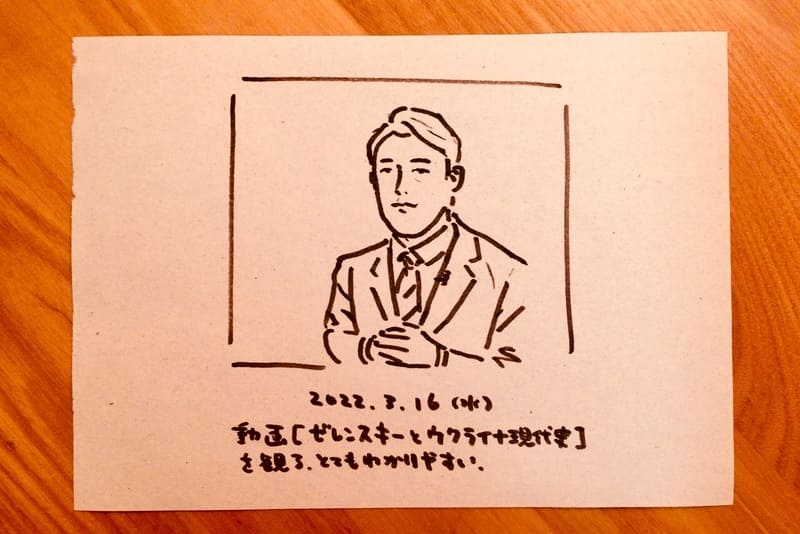 2022.3.16(水)
動画[ゼレンスキーとウクライナ現代史]
を観る、とてもわかりやすい。